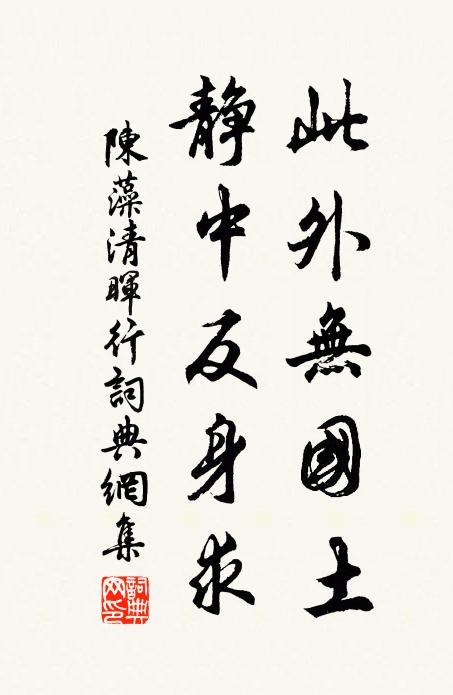 此外無國土
静中反身求
陳藻清暉行詞典網集
詞典網印